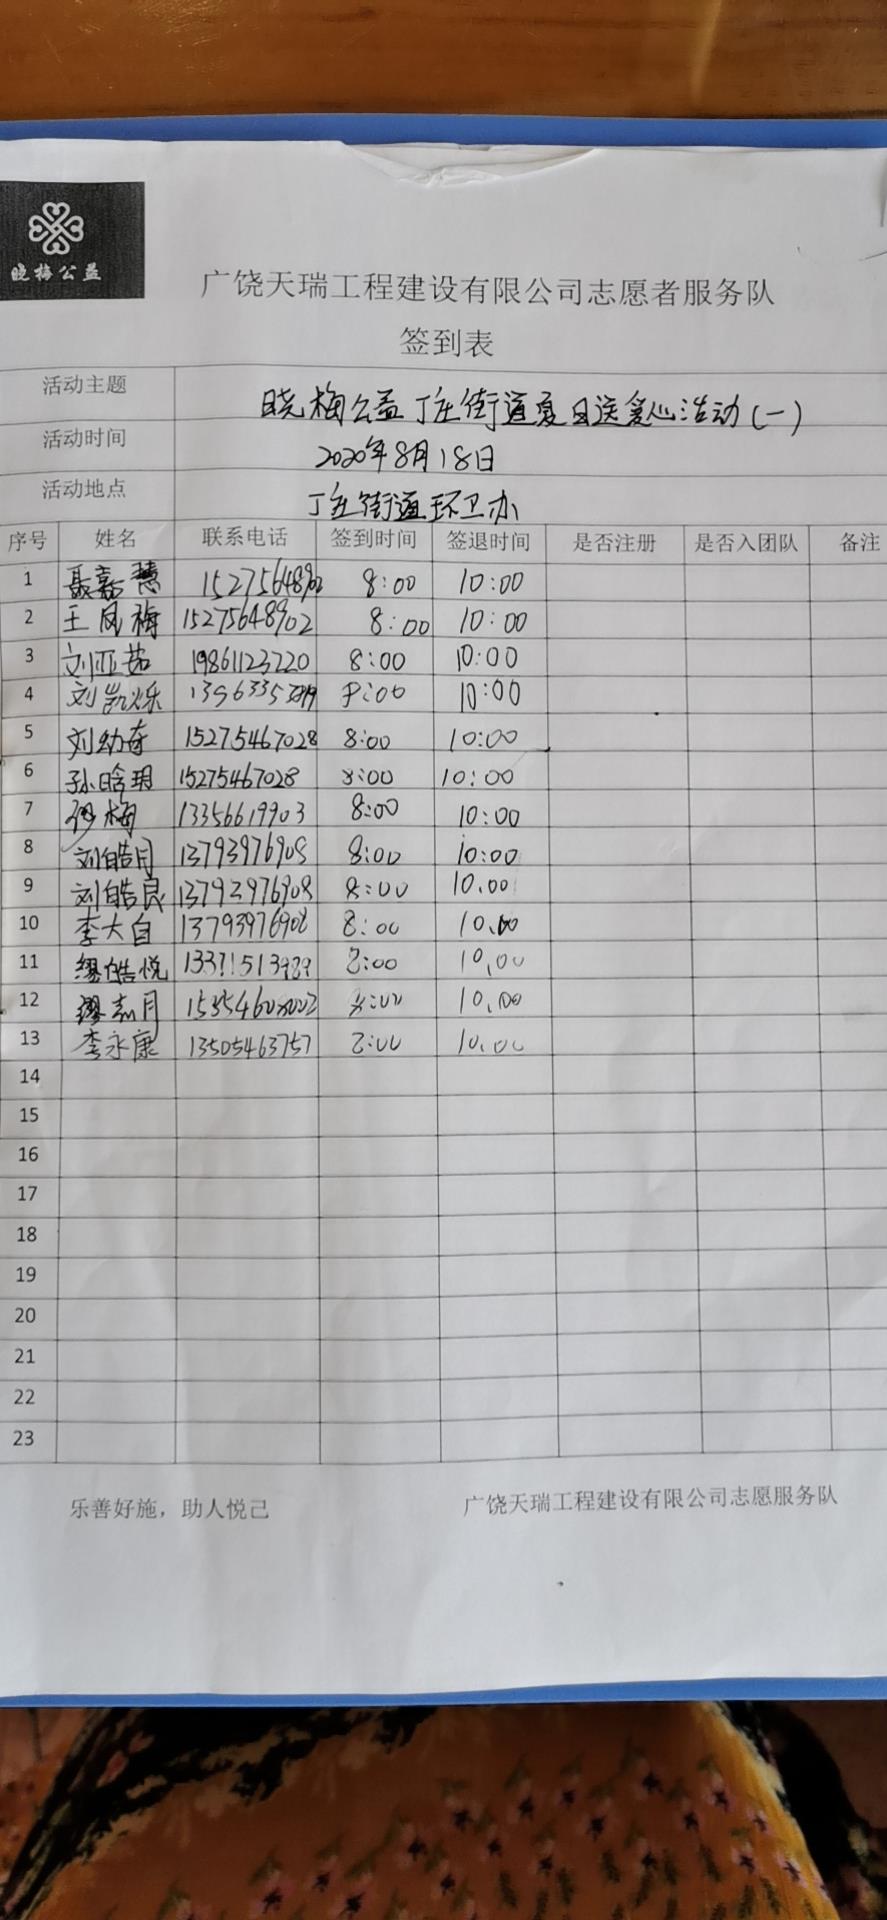 晓梅公益
广饶天瑞工程建设有限公司志愿者服务队
签到表
活动主题 晓梅公益丁庄街道夏日送爱心活动(一)
活动时间 2020年8月18日
活动地点 丁庄街道环卫办
序号 姓名 联系电话 签到时间 签退时间 是否注册 是否入团队 备注
1 聂嘉慧 15275648902 8:00 10:00
2 王凤梅 15275648902 8:00 10:00
3 刘亚茹 19861123220 8:00 10:00
4 刘凯烁 8:00 10:00
5 刘幼奇 15275467028 8:00 10:00
6 孙晗玥 15275467028 8:00 10:00
7 13356619903 8:00 10:00
8 刘皓月 13793976908 8:00 10:00
9 刘皓良 13793976908 8:00 10.00
10 李大自 13793976908 8:00 10.00
11 缪皓悦 8:00 10.00
12 8:00 10.00
13 李永康 13505463757 8:00 10.00
14
15
16
17
18
19
20
21
22
23
乐善好施，助人悦己 广饶天瑞工程建设有限公司志愿服务队